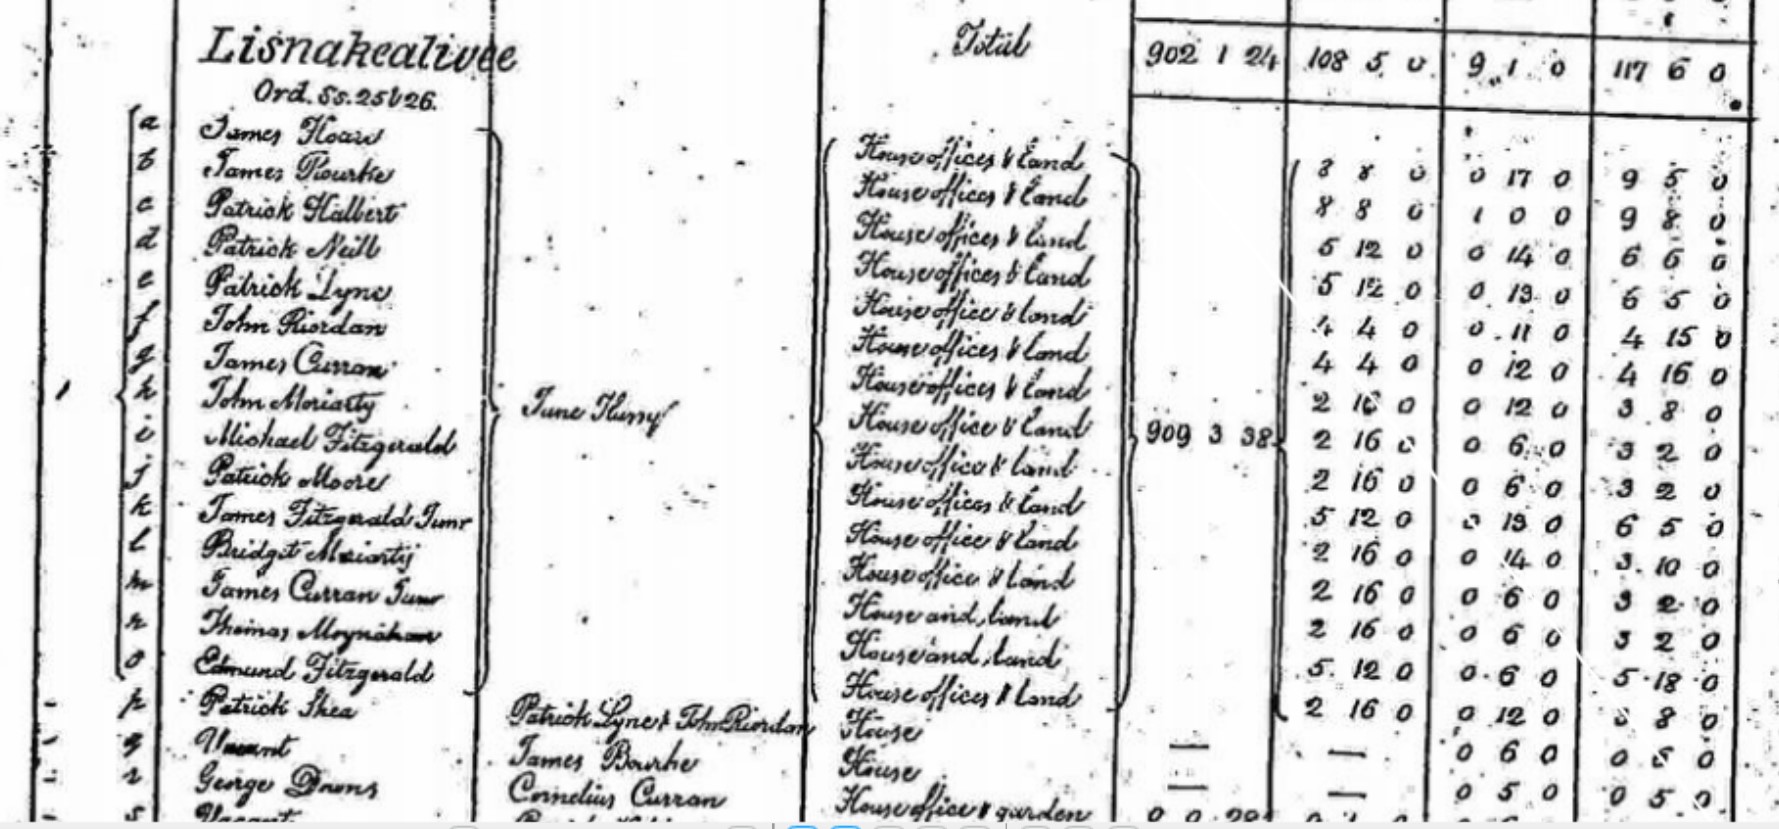 Total 902 1 24 108 5 0 9 1 0 117 6 0
Lisnakealivee
Ord. Ss. 25 & 26.
a James Hoare House offices & land 8 8 0 0 17 0 9 5 0
b James Rourke House offices & land 8 8 0 1 0 0 9 8 0
c Patrick Halbert House offices & land 5 12 0 0 14 0 6 6 0
d Patrick Neill House offices & land 5 12 0 0 13 0 6 5 0
e Patrick Lyne House office & land 4 4 0 0 11 0 4 15 0
f John Riordan House offices & land 4 4 0 0 12 0 4 16 0
g James Curran House offices & land 2 16 0 0 12 0 3 8 0
1 h John Moriarty House office & land 2 16 0 0 6 0 3 2 0
i Michael Fitzgerald House office & land 2 16 0 0 6 0 3 2 0
June 909 3 38
j Patrick Moore House offices & land 5 12 0 0 13 0 6 5 0
k James Fitzgerald Junr House office & land 2 16 0 0 14 0 3 10 0
l Bridget Moriarty House office & land 2 16 0 0 6 0 3 2 0
m James Curran Junr House and land 2 16 0 0 6 0 3 2 0
n Thomas Moynahan House and land 5 12 0 0 6 0 5 18 0
o Edmund Fitzgerald House offices & land 2 16 0 0 12 0 8 0
p Patrick Shea Patrick Lyne & John Riordan House — — 0 6 0 0 0
q Vacant James Bourke House — — 0 5 0 0 5 0
r George Cornelius Curran House office & garden
s Vacant